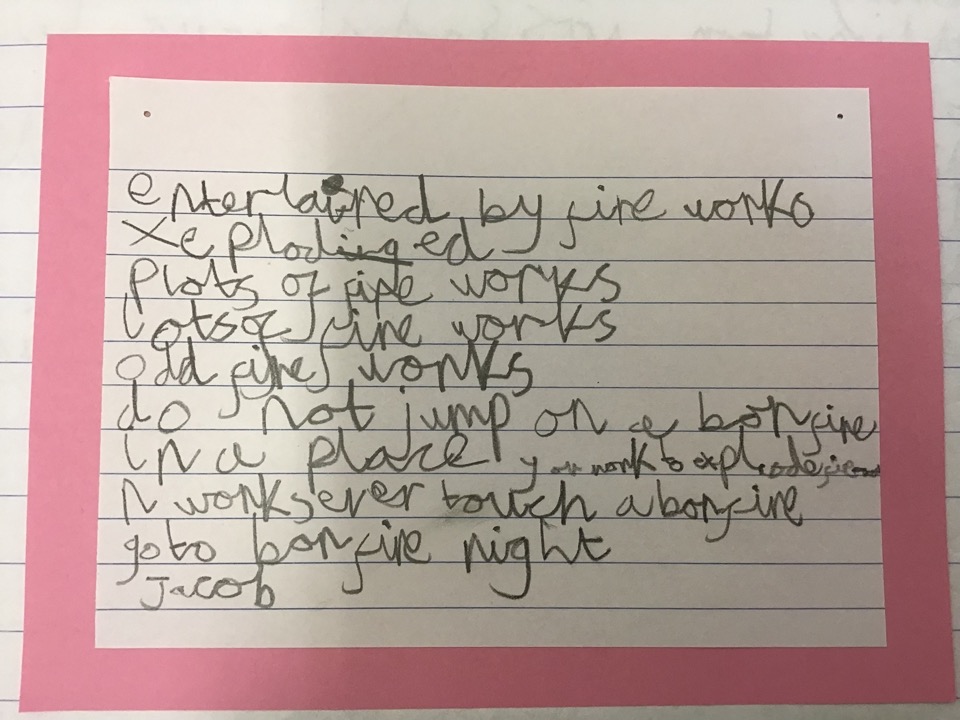 entertained by fire works
Xeplodinged
plots of fire works
lots of fire works
odd fire works
do not jump on a bonfire
in a place you work to explode fire
N works ever touch a bonfire
go to bonfire night
Jacob